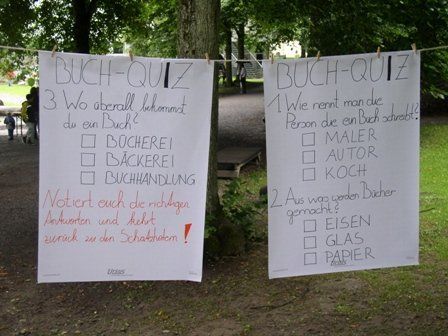 BUCH-QUIZ
3. Wo überall bekommst
du ein Buch?
BÜCHEREI
BÄCKEREI
BUCHHANDLUNG
Notiert euch die richtigen
Antworten und kehrt
zurück zu den Schatzhütern!
BUCH-QUIZ
1. Wie nennt man die
Person die ein Buch schreibt?
MALER
AUTOR
KOCH
2. Aus was werden Bücher
gemacht?
EISEN
GLAS
PAPIER